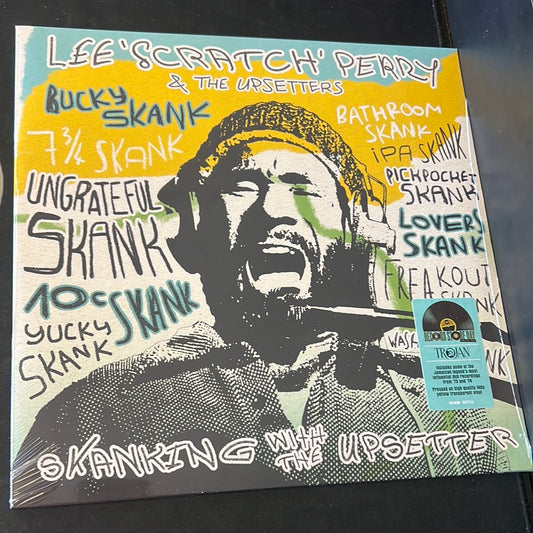 LEE 'SCRATCH' PERRY
& THE UPSETTERS
BUCKY
SKANK
7 3/4 SKANK
UNGRATEFUL
SKANK
10c SKANK
YUCKY
SKANK
BATHROOM
SKANK
IPA SKANK
PICKPOCKET
SKANK
LOVERS
SKANK
FREAKOUT
SKANK
WASH
SKANK
RECORD STORE DAY
TROJAN
Includes some of the
Jamaican legend's most
influential dub recordings
from '73 and '74
Pressed on high quality 140g
yellow transparent vinyl
SKANKING WITH THE UPSETTER